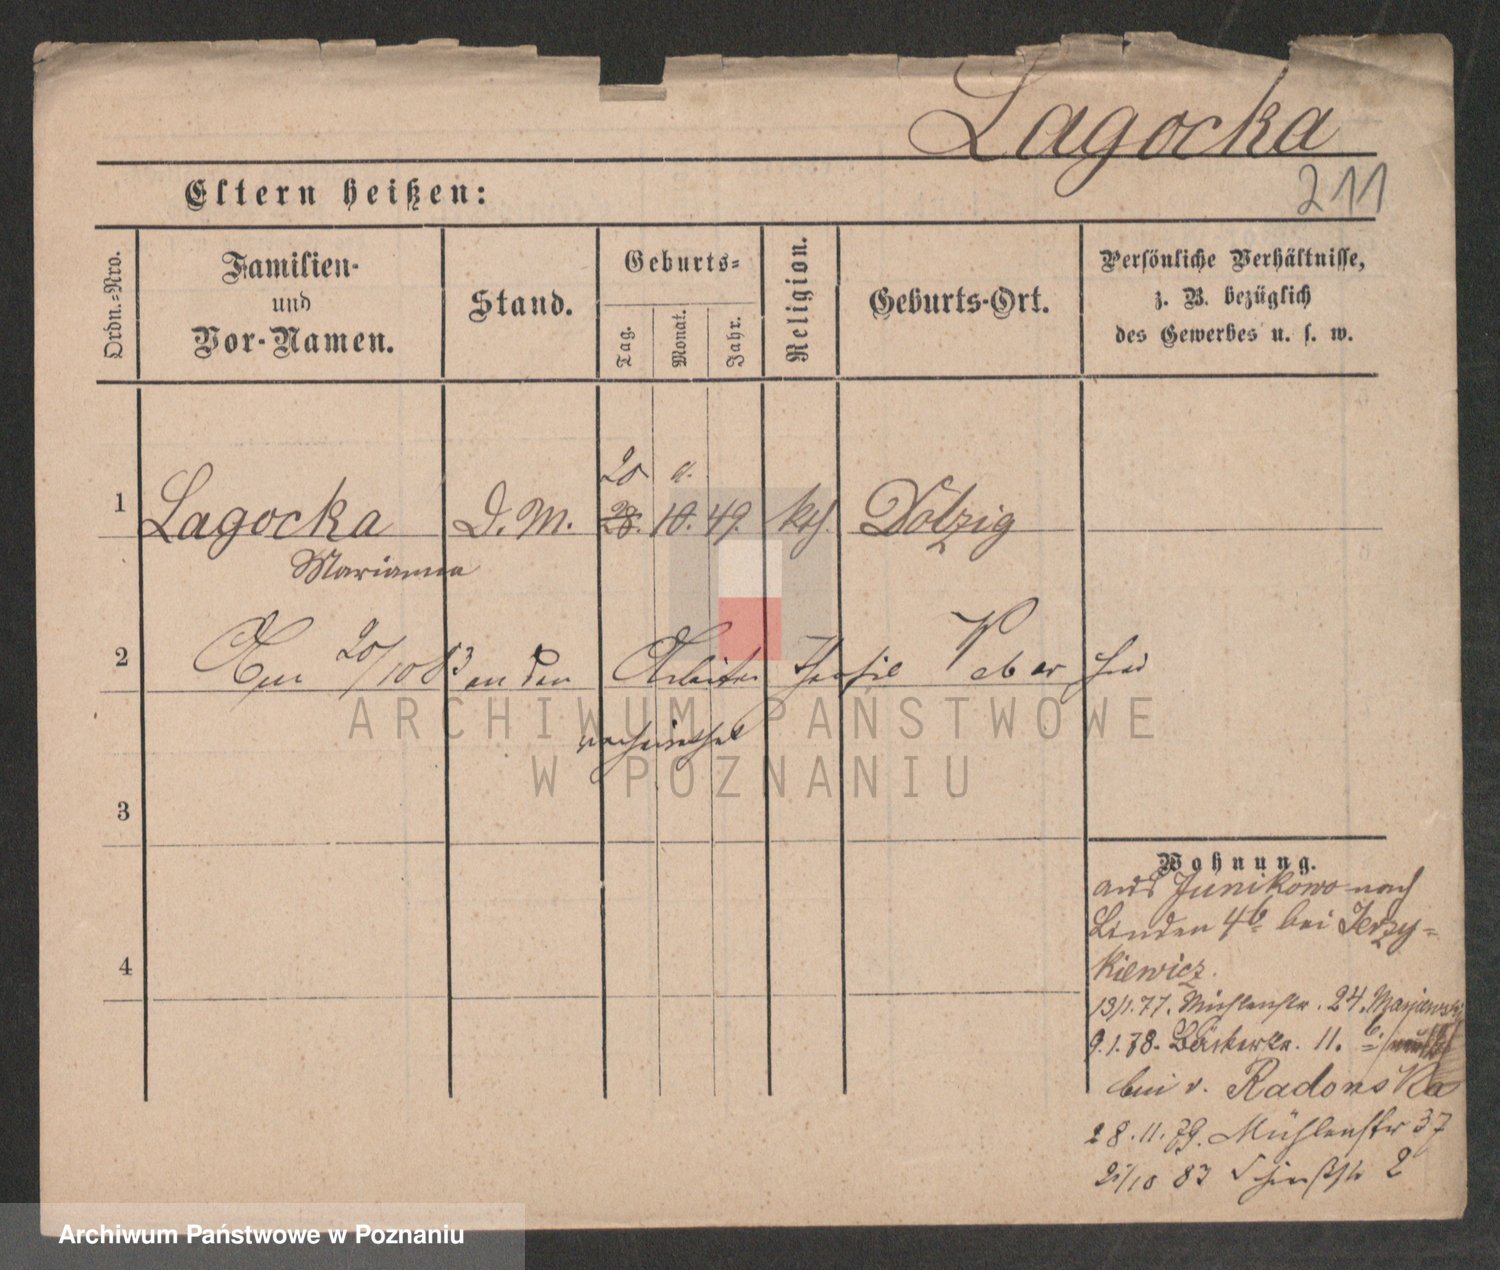 Lagocka
211
Eltern heißen:
Ordn.-Nro.
Familien-
und
Vor-Namen.
Stand.
Geburts-
Tag.
Monat.
Jahr.
Religion.
Geburts-Ort.
Persönliche Verhältnisse,
z. B. bezüglich
des Gewerbes u. s. w.
20
1 Lagocka D. M. 28. 10. 49. kth. Dolzig
Marianna
2 Am 20/10 83 an den Arbeiter
verheirathet
3
Wohnung.
aus Junikowo nach
Linden 4b bei Jerzy-
kiewicz.
4
13/1.77. Mühlenstr. 24.
9.1.78. Bäckerstr. 11.
bei v. Radonska
28.11.79. Mühlenstr 37
83 2
ARCHIWUM PAŃSTWOWE
W POZNANIU
Archiwum Państwowe w Poznaniu